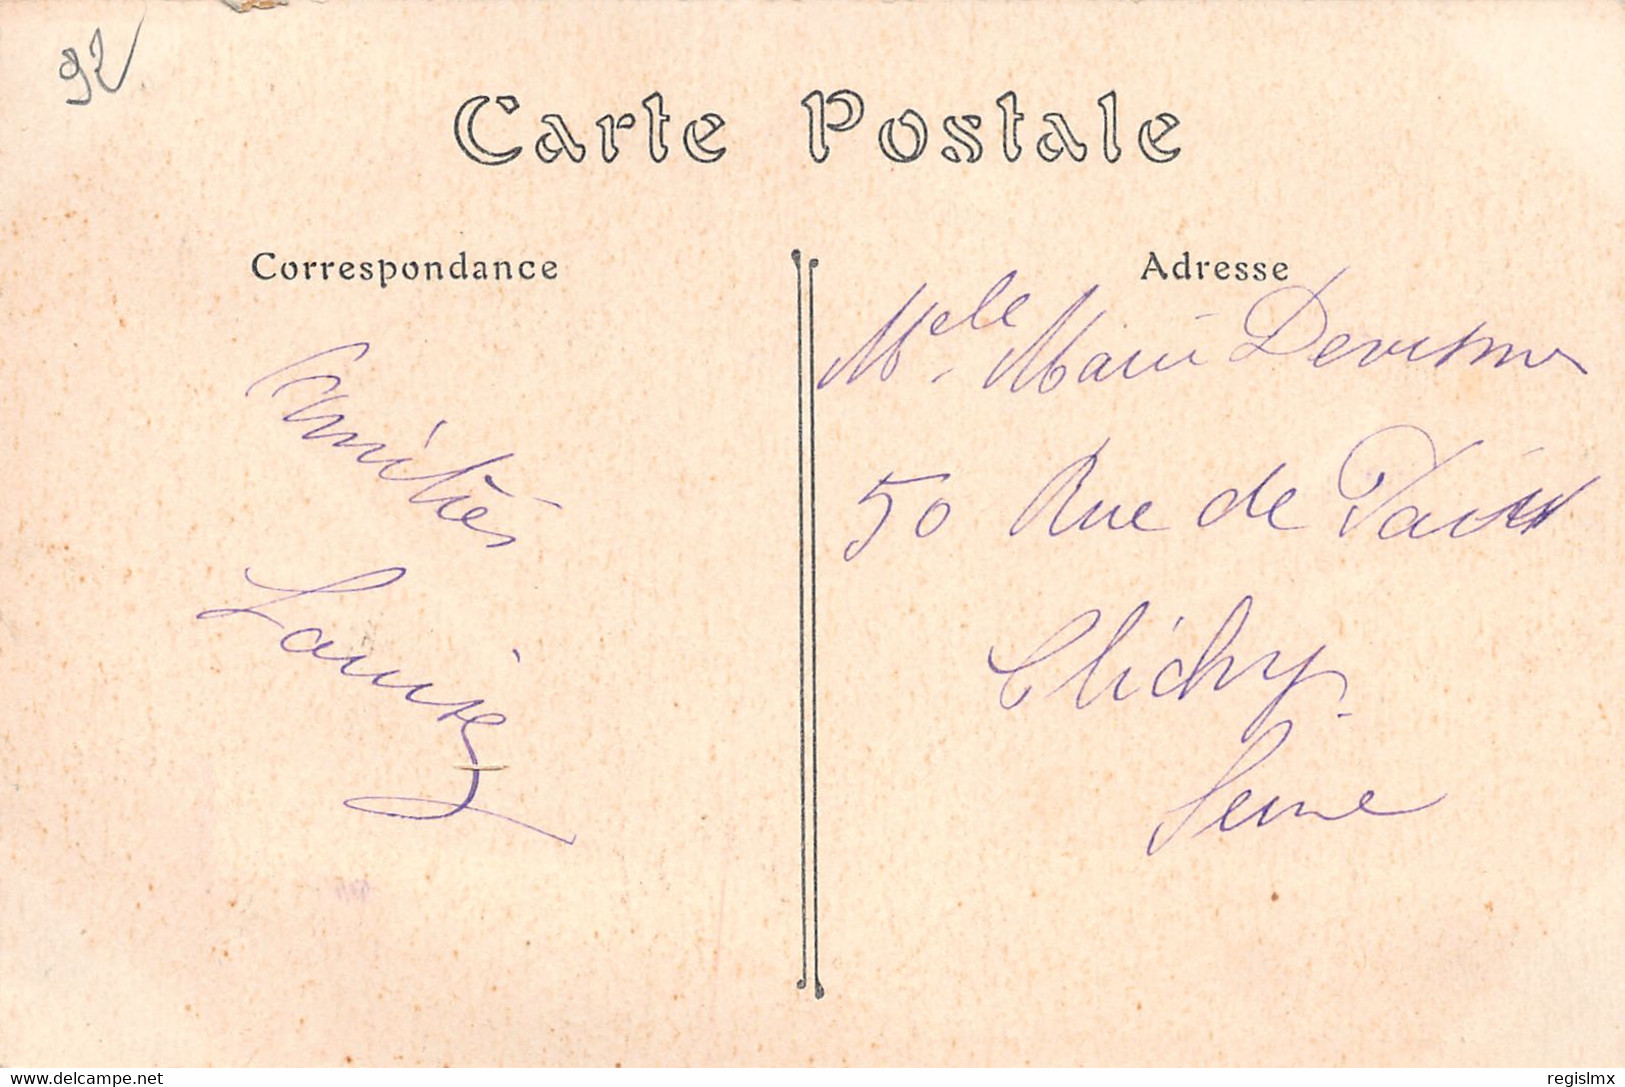 92
Carte Postale
Correspondance
Amitiés
Louise
Adresse
Melle Marie Devismes
50 Rue de Paris
Clichy
Seine
www.delcampe.net
regislmx